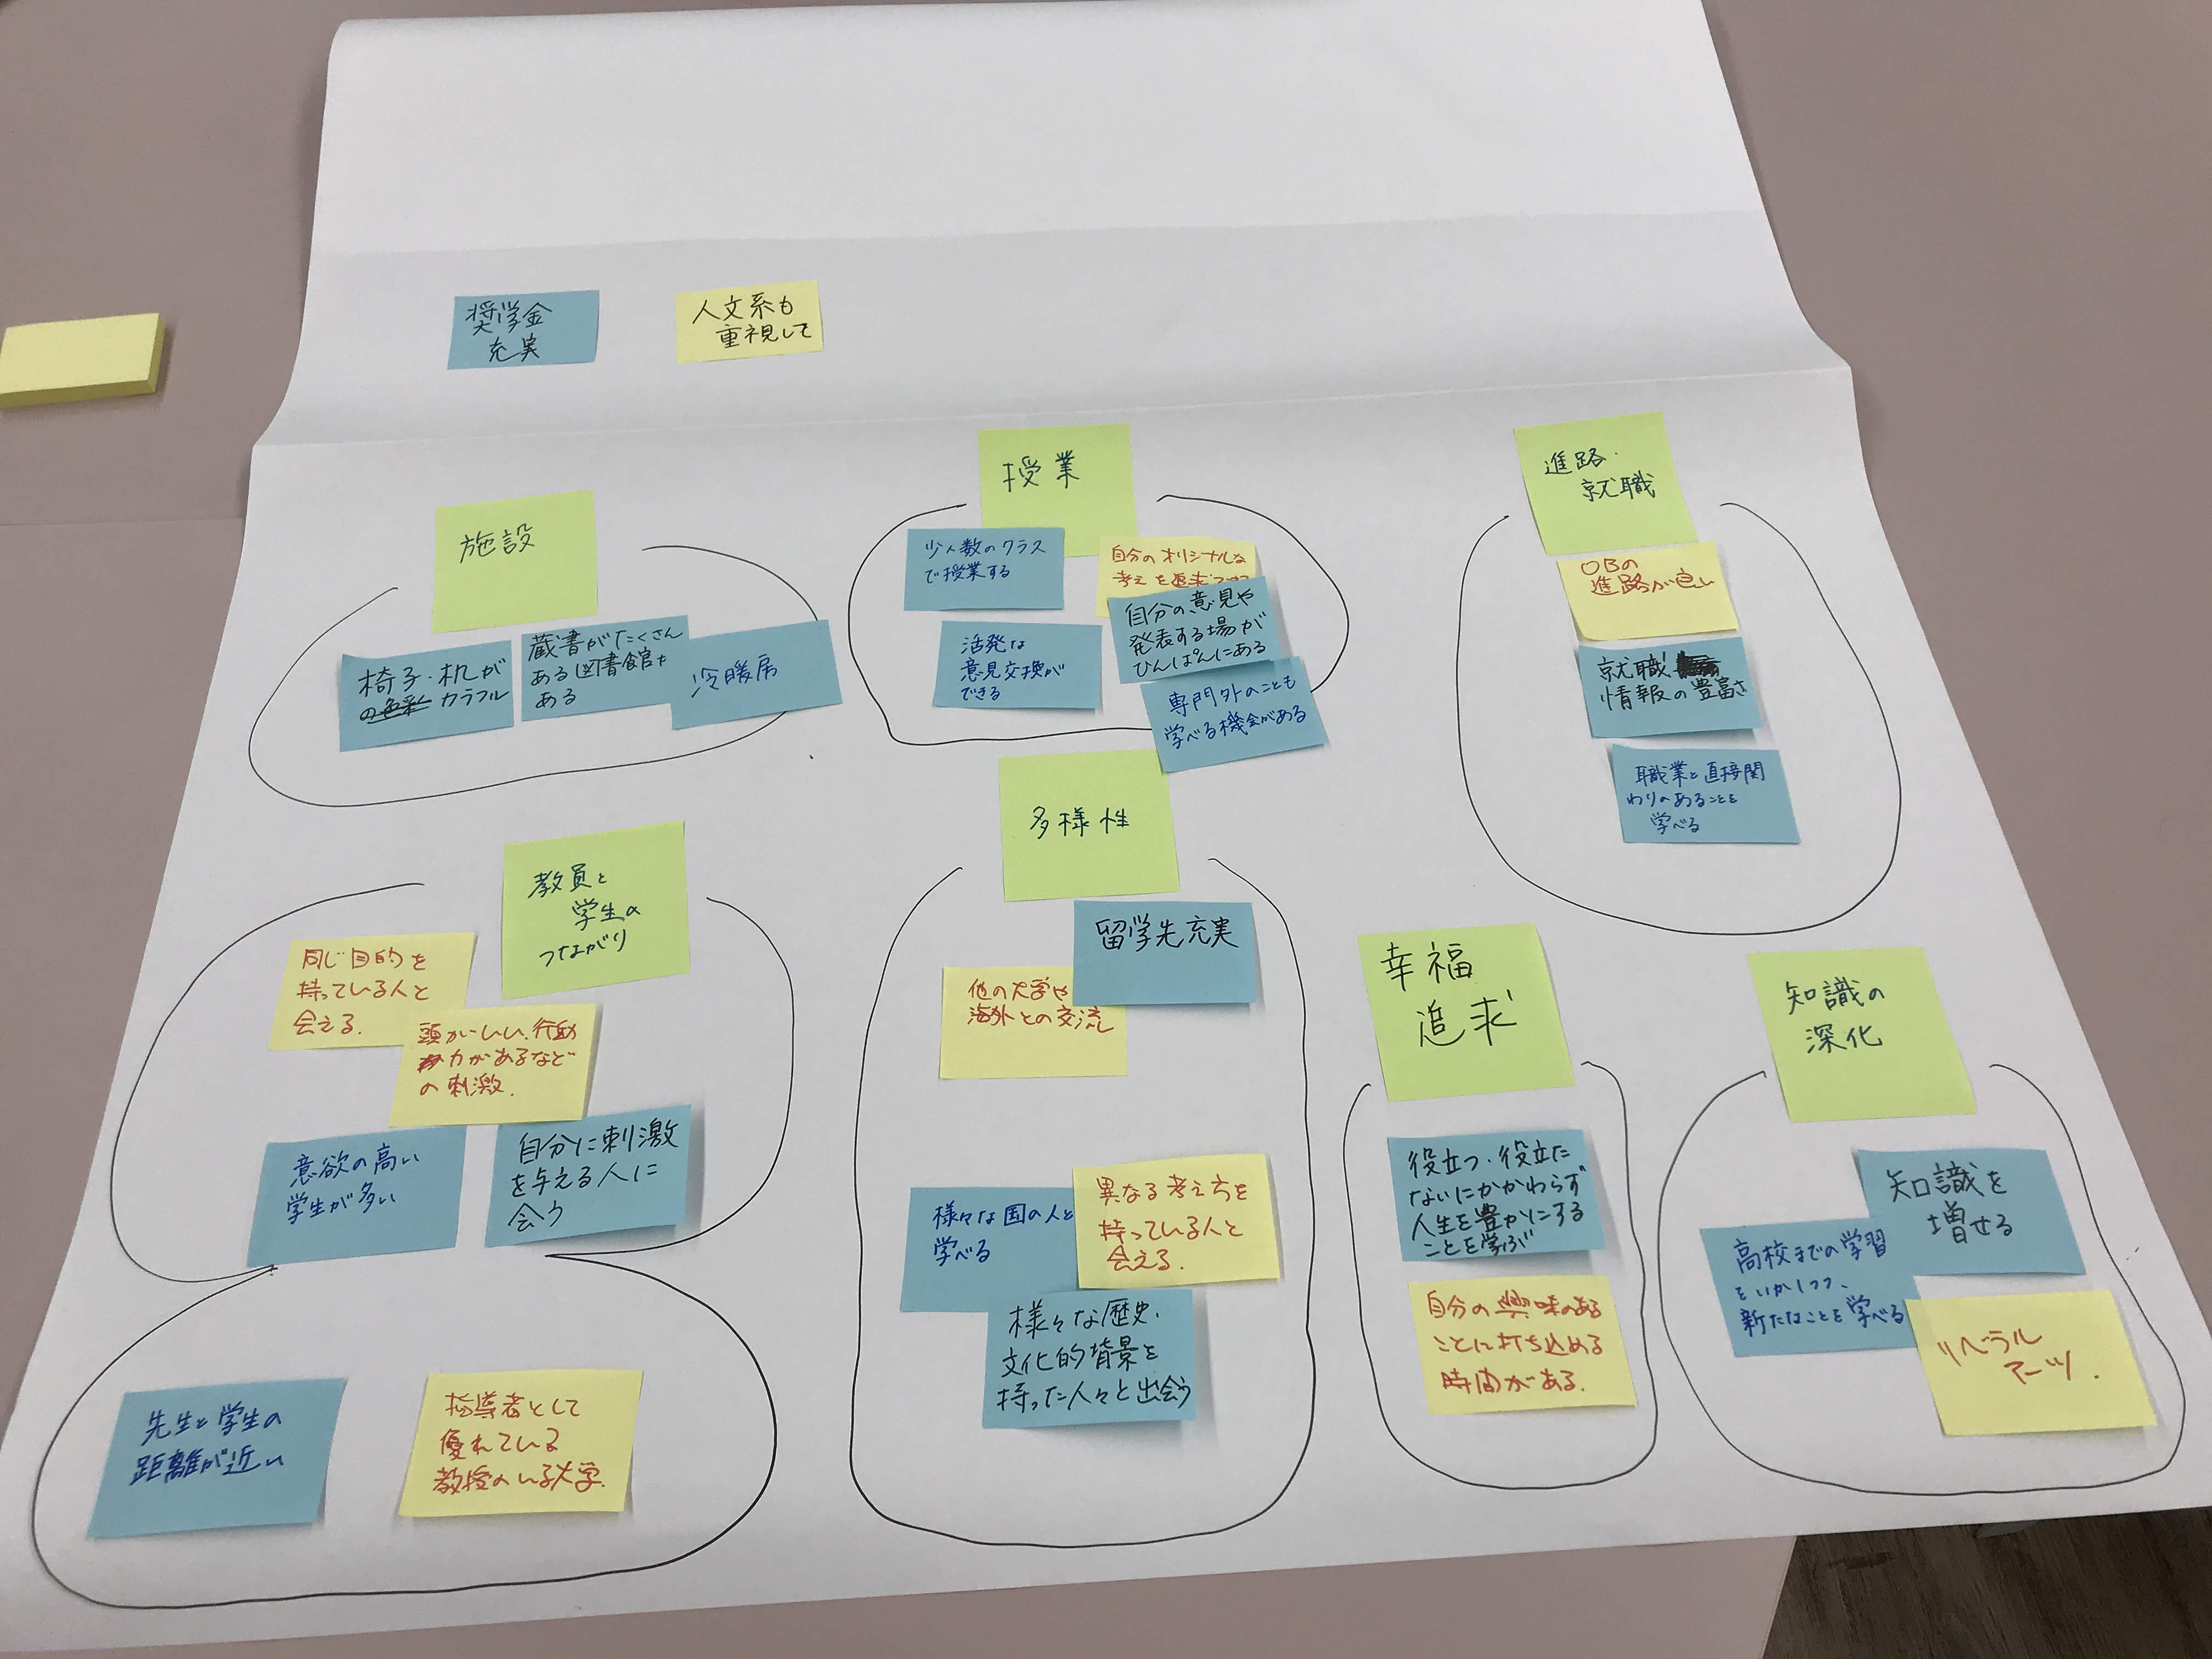 奨学金
充実
人文系も
重視して
施設
椅子・机が
カラフル
蔵書がたくさん
ある図書館が
ある
冷暖房
授業
少人数のクラス
で授業する
自分のオリジナルな
考えを追求
活発な
意見交換が
できる
自分の意見や
発表する場が
ひんぱんにある
専門外のことも
学べる機会がある
進路・
就職
OBの
進路が良い
就職
情報の豊富さ
職業と直接関
わりのあることを
学べる
教員と
学生の
つながり
同じ目的を
持っている人と
会える.
頭がいい、行動
力があるなど
の刺激.
意欲の高い
学生が多い
自分に刺激
を与える人に
会う
先生と学生の
距離が近い
指導者として
優れている
教授のいる大学.
多様性
留学先充実
他の大学や
海外との交流
様々な国の人と
学べる
異なる考え方を
持っている人と
会える.
様々な歴史、
文化的背景を
持った人々と出会う
幸福
追求
役立つ・役立た
ないにかかわらず
人生を豊かにする
ことを学ぶ
自分の興味のある
ことに打ち込める
時間がある.
知識の
深化
知識を
増せる
高校までの学習
をいかしつつ、
新たなことを学べる
リベラル
アーツ.